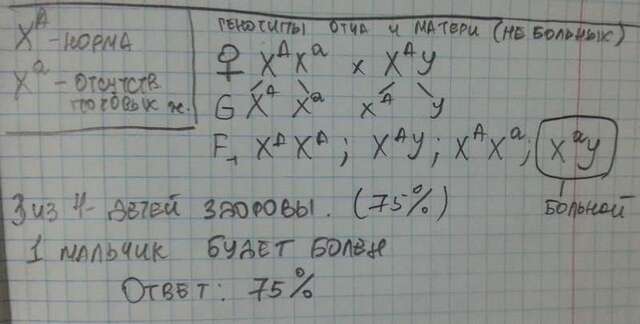 X^A - НОРМА
X^a - ОТСУТСТВ
ПОТОВЫХ Ж.
ГЕНОТИПЫ ОТЦА И МАТЕРИ (НЕ БОЛЬНЫХ)
♀ X^A X^a x X^A У
G X^A X^a X^A У
F₁ X^A X^A ; X^A У ; X^A X^a ; X^a У
БОЛЬНОЙ
3 ИЗ 4 - ДЕТЕЙ ЗДОРОВЫ. (75%)
1 МАЛЬЧИК БУДЕТ БОЛЕН
ОТВЕТ: 75%